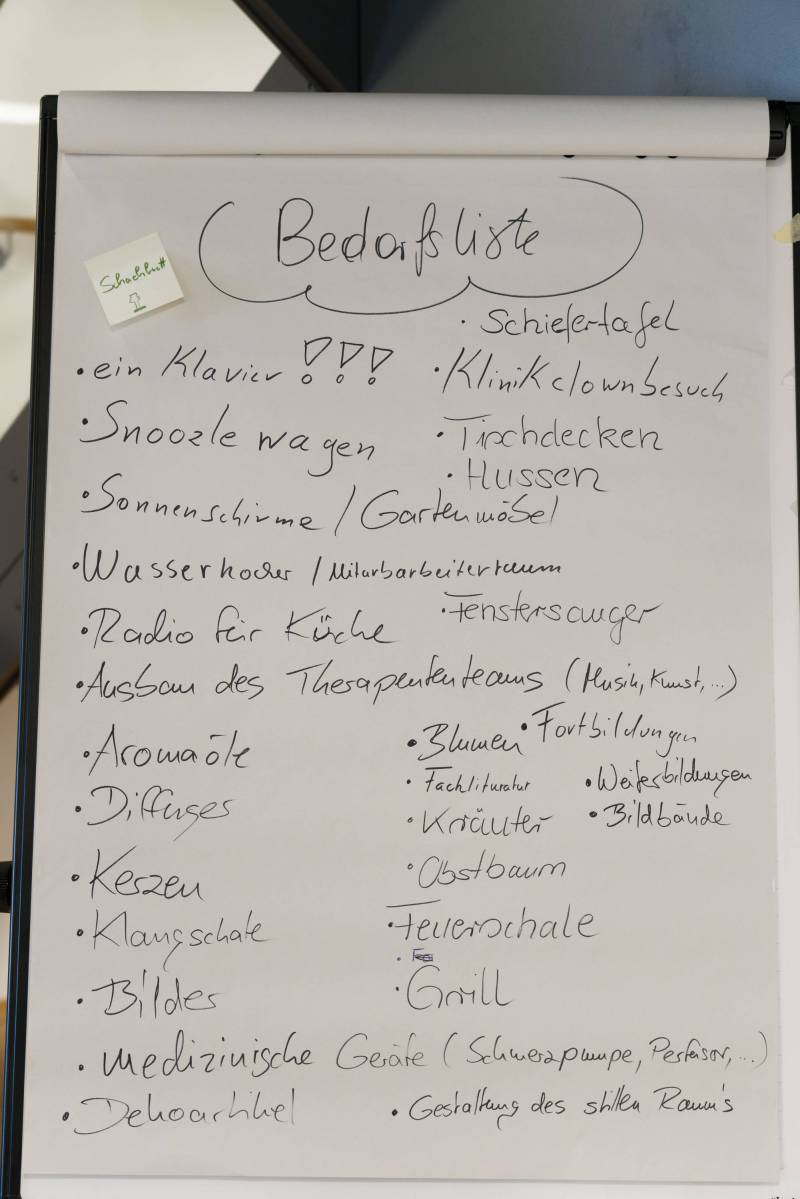 Bedarfsliste
Schachbrett
· Schiefertafel
· ein Klavier !!!
· Klinikclownbesuch
· Snoozle wagen
· Tischdecken
· Hussen
· Sonnenschirme / Gartenmöbel
· Wasserkocher / Mitarbarbeiterraum
· Radio für Küche
· Fenstersauger
· Ausbau des Therapeutenteams (Musik, Kunst, ...)
· Aromaöle
· Blumen
· Fortbildungen
· Diffuser
· Fachlituratur
· Weiterbildungen
· Kräuter
· Bildbände
· Kerzen
· Obstbaum
· Klangschale
· Feuerschale
· Bilder
· Grill
· medizinische Geräte (Schmerzpumpe, Perfusor, ...)
· Dekoartikel
· Gestaltung des stillen Raum's